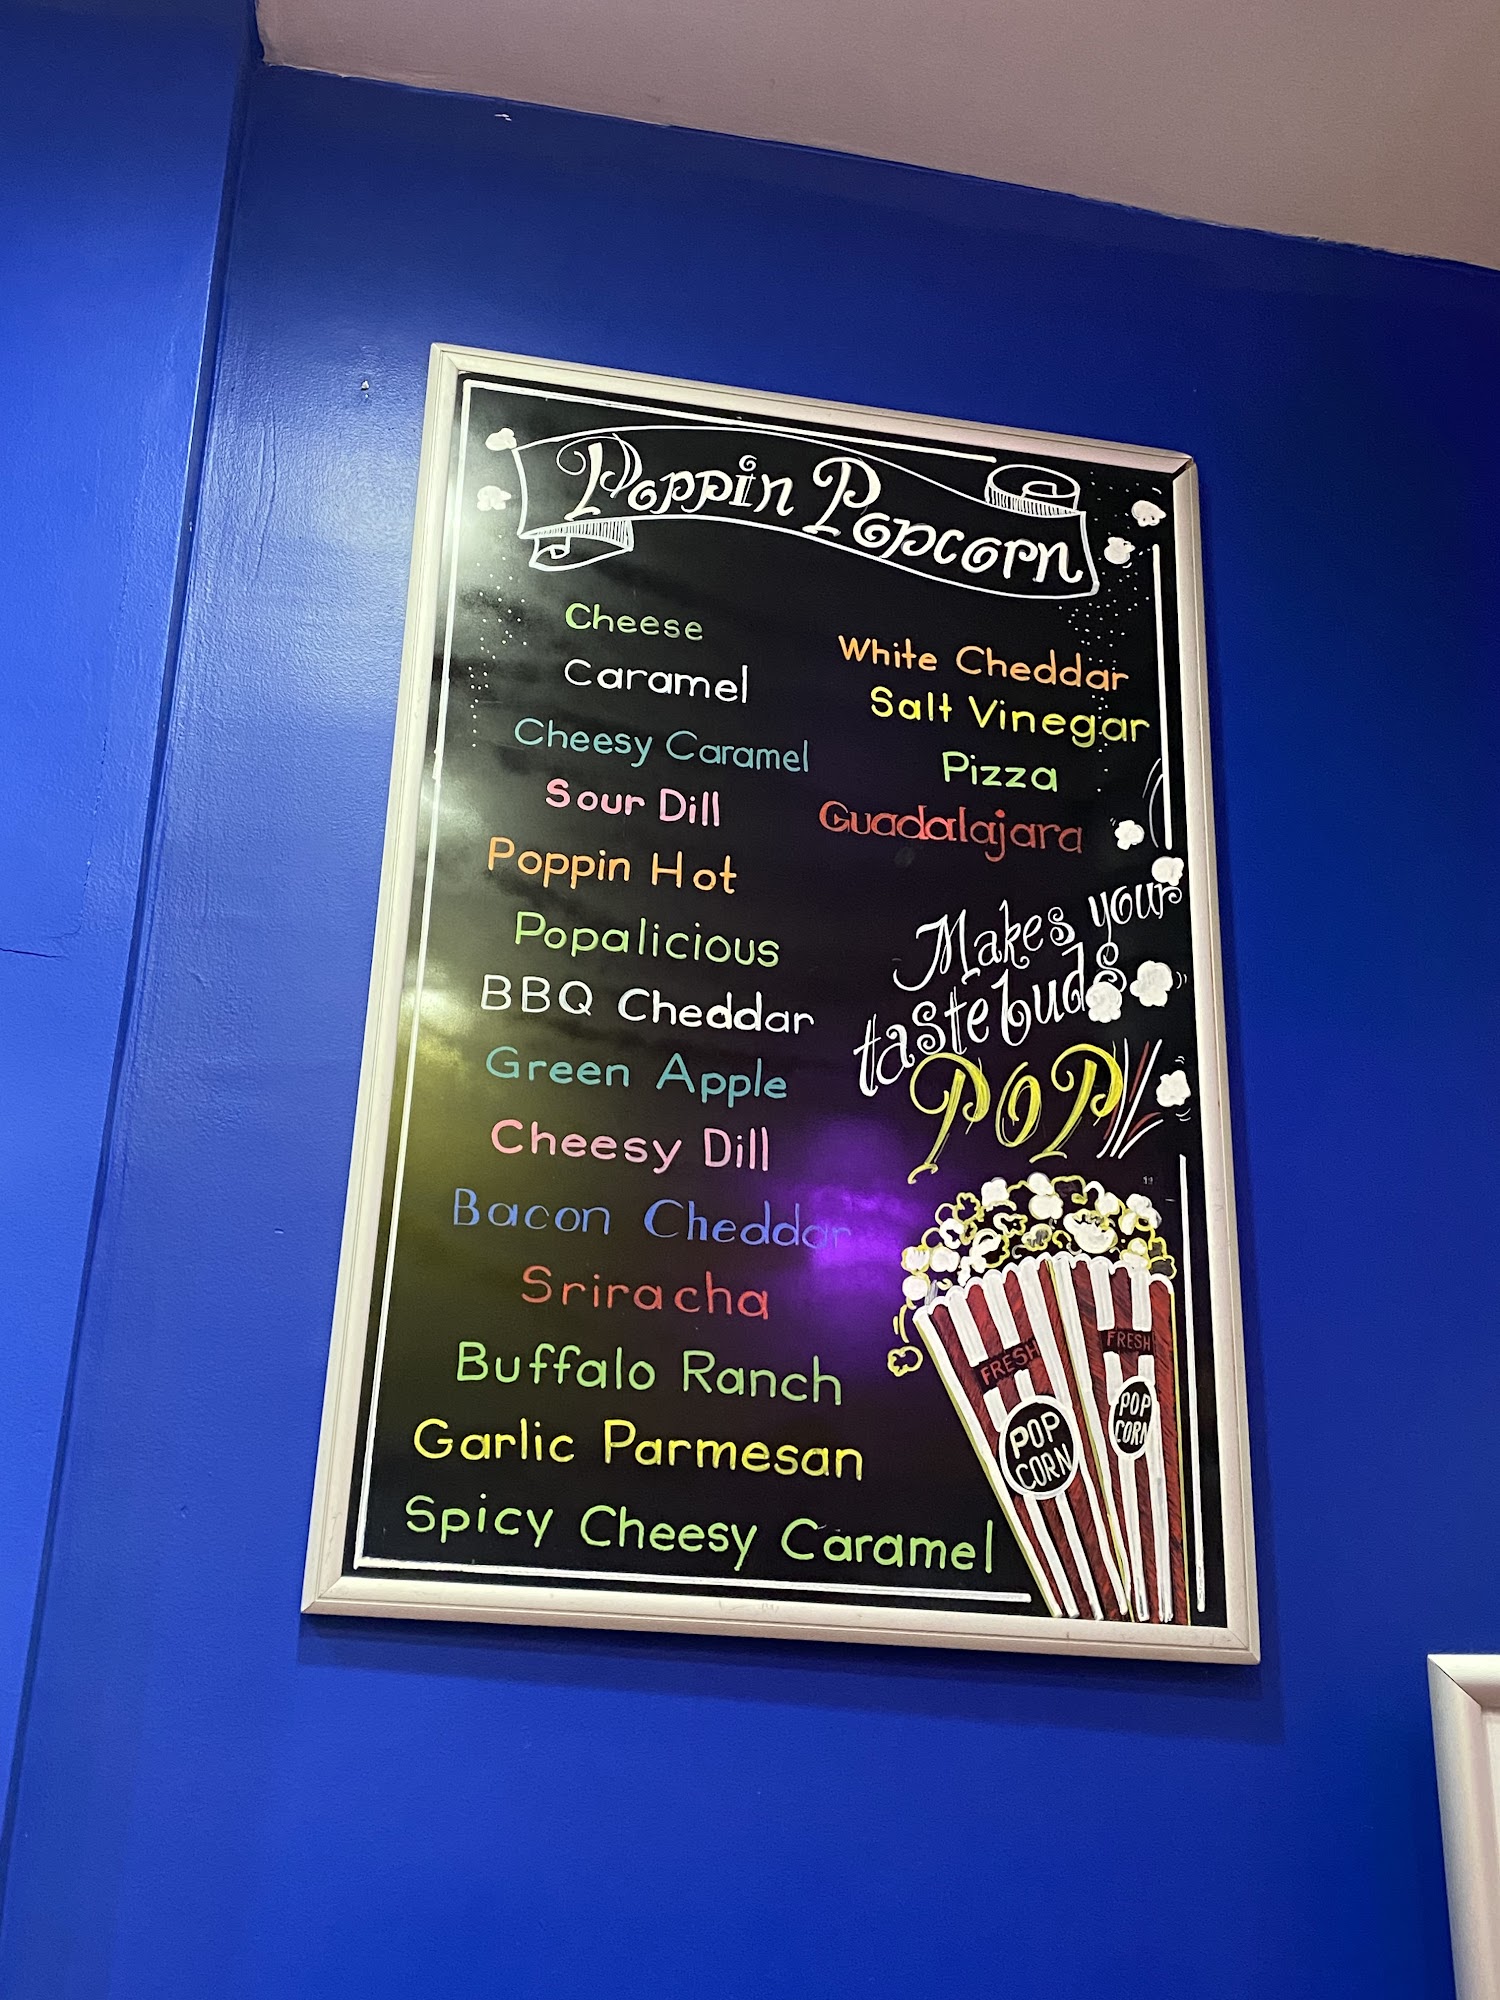 Poppin Popcorn
Cheese
Caramel
Cheesy Caramel
Sour Dill
Poppin Hot
Popalicious
BBQ Cheddar
Green Apple
Cheesy Dill
Bacon Cheddar
Sriracha
Buffalo Ranch
Garlic Parmesan
Spicy Cheesy Caramel
White Cheddar
Salt Vinegar
Pizza
Guadalajara
Makes your
tastebuds
POP
FRESH
POP
CORN
FRESH
POP
CORN